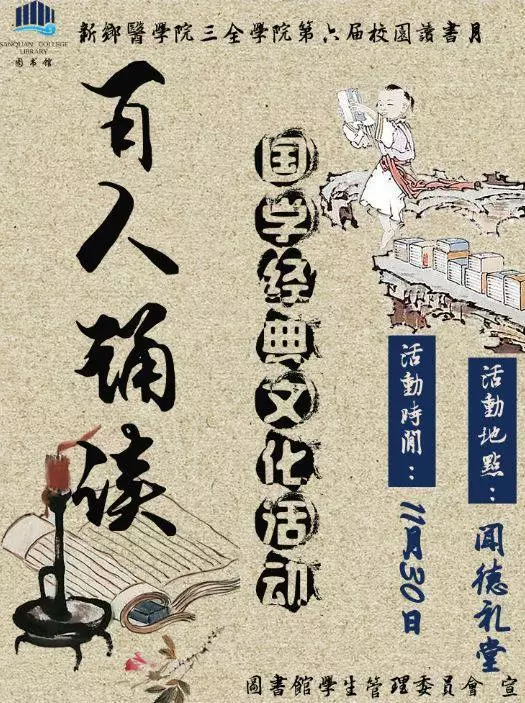 SANQUAN COLLEGE
LIBRARY
图书馆
新鄉醫學院三全學院第六届校園讀書月
百人誦读
国学经典文化活动
活動時間：11月30日
活動地點：闻德礼堂
圖書館學生管理委員會 宣